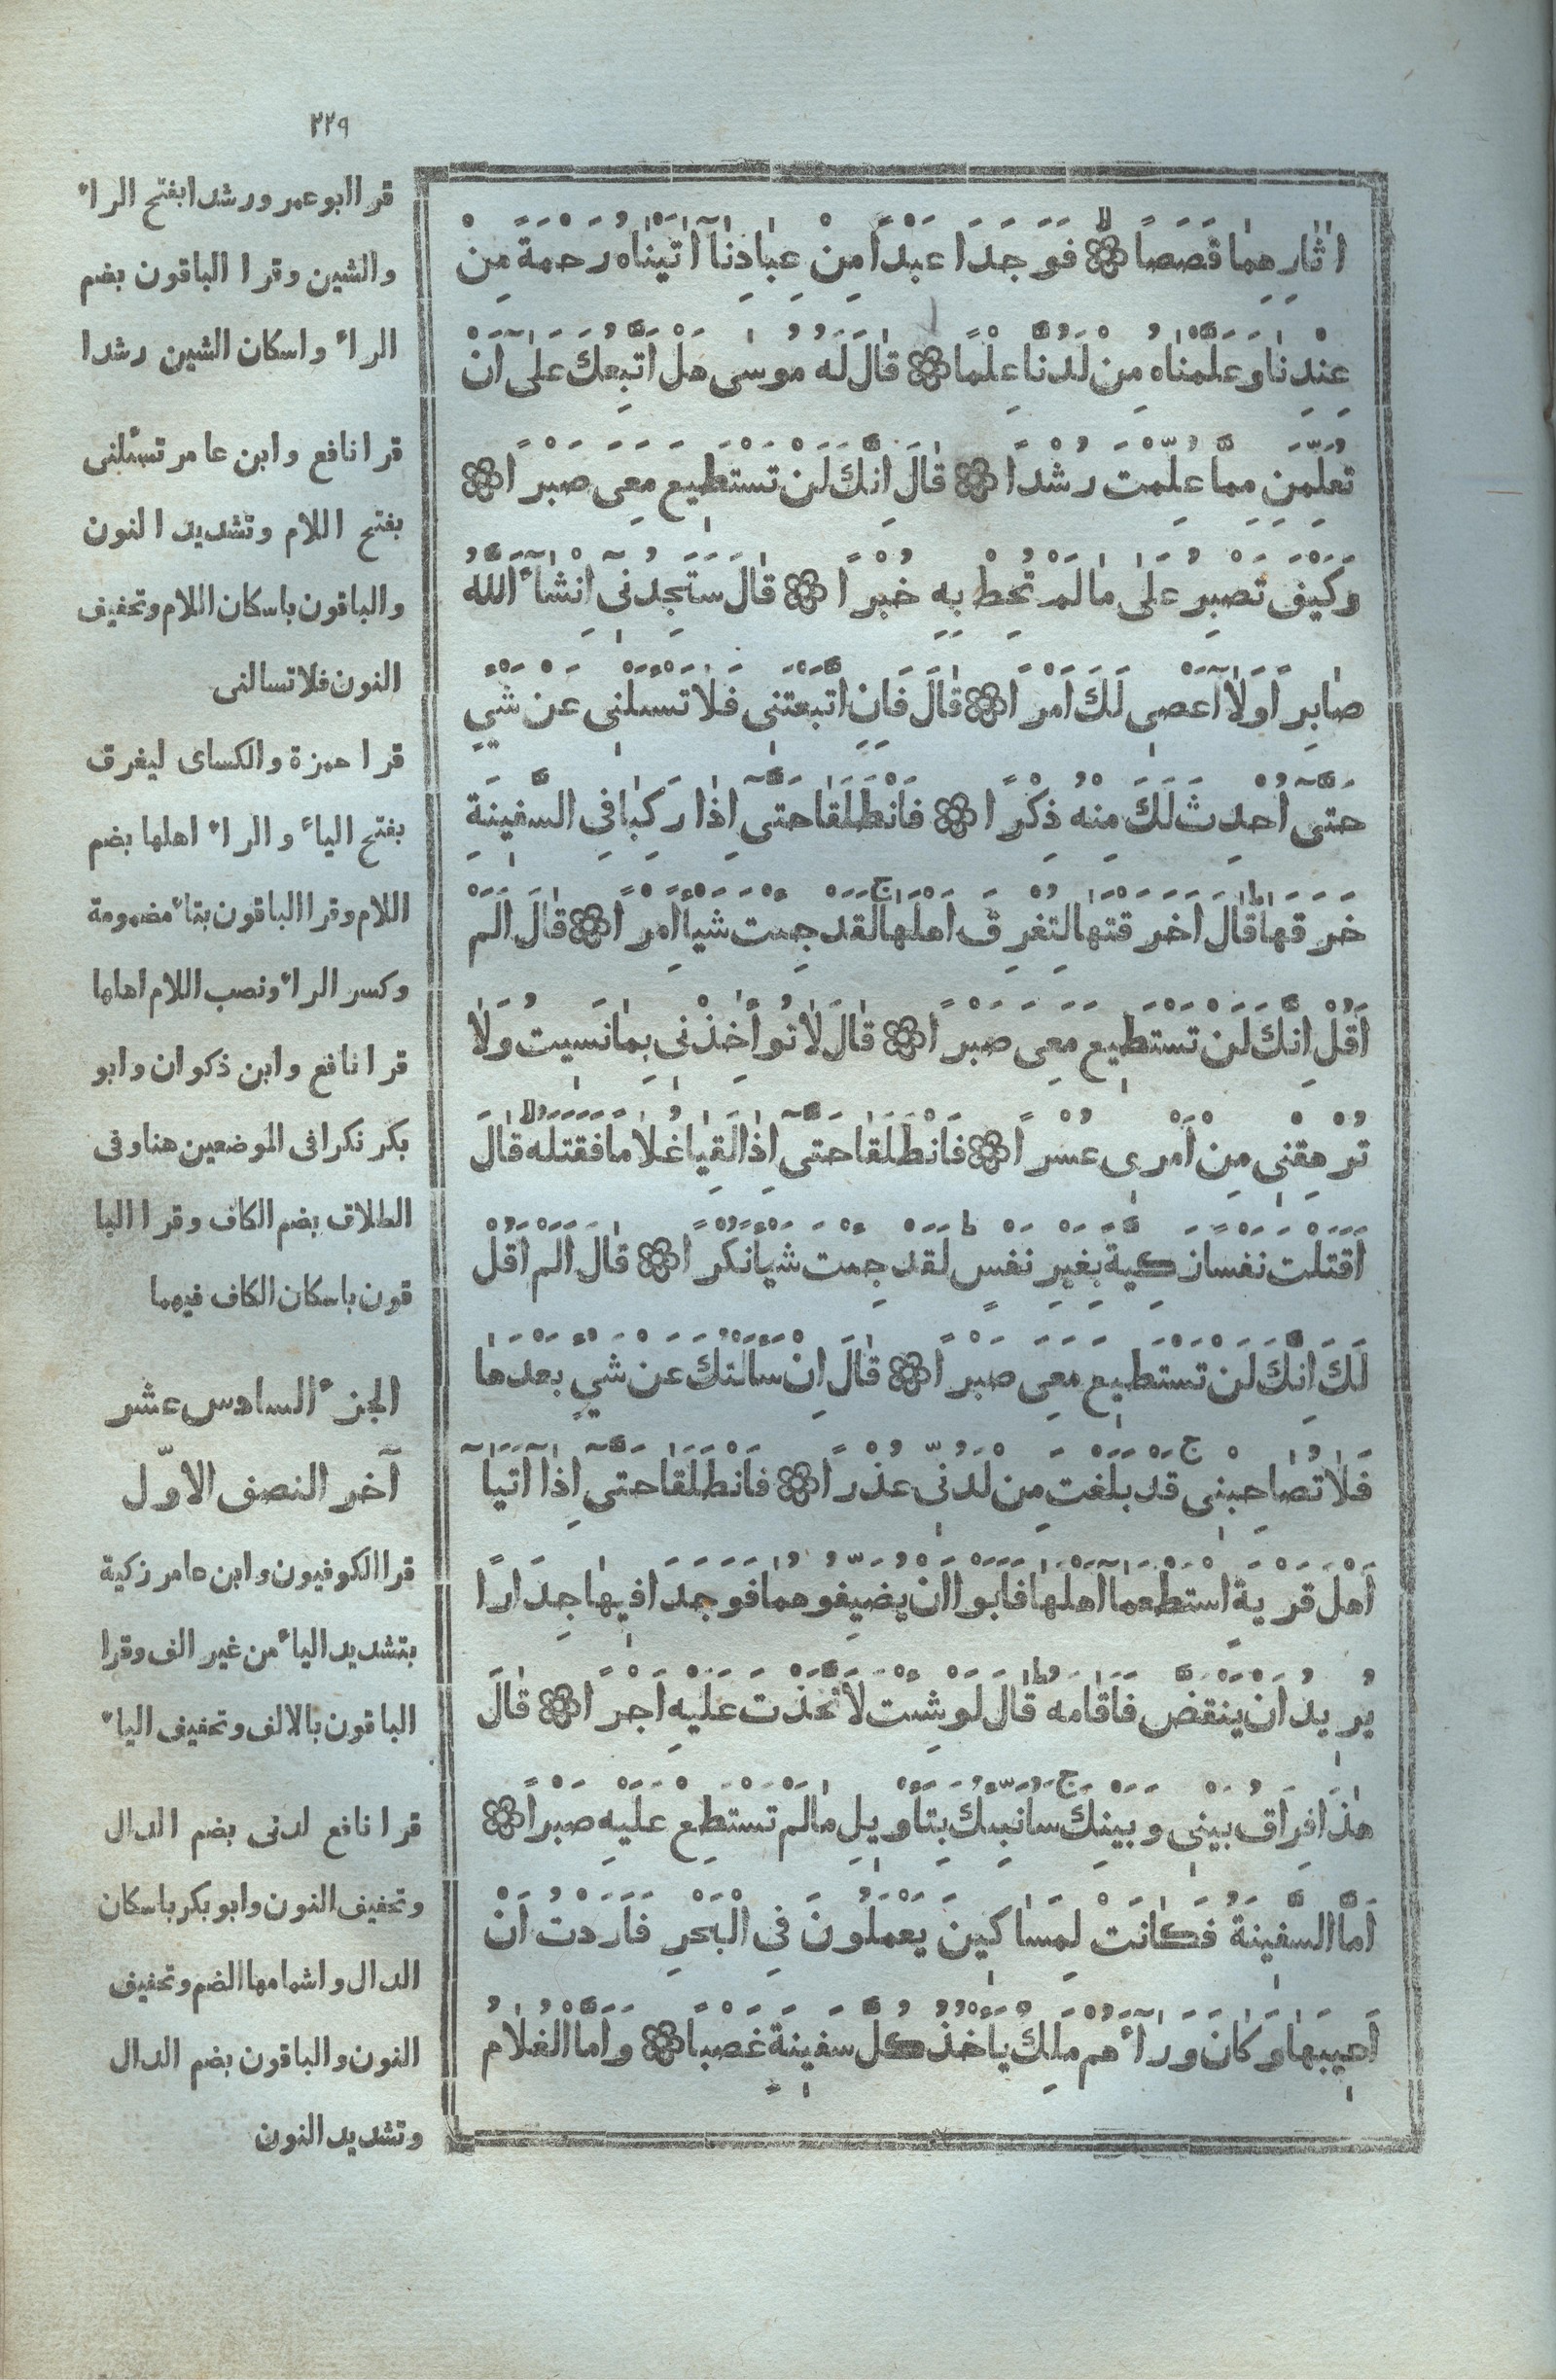 ٢٢٩
اٰثٰارِهِمٰا قَصَصاً ۝ فَوَجَدَا عَبْدًا مِنْ عِبٰادِنٰٓا اٰتَيْنٰاهُ رَحْمَةً مِنْ
عِنْدِنٰا وَعَلَّمْنٰاهُ مِنْ لَدُنّٰا عِلْمًا ۝ قٰالَ لَهُ مُوسٰى هَلْ اَتَّبِعُكَ عَلٰٓى اَنْ
تُعَلِّمَنِ مِمَّا عُلِّمْتَ رُشْدًا ۝ قٰالَ اِنَّكَ لَنْ تَسْتَطِيعَ مَعِيَ صَبْرًا ۝
وَكَيْفَ تَصْبِرُ عَلٰى مٰا لَمْ تُحِطْ بِهِ خُبْرًا ۝ قٰالَ سَتَجِدُنِىٓ اِنْشٰٓاءَ اللّٰهُ
صٰابِرًا وَلٰٓا اَعْصِى لَكَ اَمْرًا ۝ قٰالَ فَاِنِ اتَّبَعْتَنِى فَلٰا تَسْـَٔلْنِى عَنْ شَيْءٍ
حَتّٰىٓ اُحْدِثَ لَكَ مِنْهُ ذِكْرًا ۝ فَانْطَلَقٰا حَتّٰىٓ اِذٰا رَكِبٰا فِى السَّفِينَةِ
خَرَقَهٰا ط قٰالَ اَخَرَقْتَهٰا لِتُغْرِقَ اَهْلَهٰا ج لَقَدْ جِئْتَ شَيْـًٔا اِمْرًا ۝ قٰالَ اَلَمْ
اَقُلْ اِنَّكَ لَنْ تَسْتَطِيعَ مَعِيَ صَبْرًا ۝ قٰالَ لٰا تُؤَاخِذْنِى بِمٰا نَسِيتُ وَلٰا
تُرْهِقْنِى مِنْ اَمْرِى عُسْرًا ۝ فَانْطَلَقٰا حَتّٰىٓ اِذٰا لَقِيٰا غُلٰامًا فَقَتَلَهُ لا قٰالَ
اَقَتَلْتَ نَفْسًا زَكِيَّةً بِغَيْرِ نَفْسٍ ط لَقَدْ جِئْتَ شَيْـًٔا نُكْرًا ۝ قٰالَ اَلَمْ اَقُلْ
لَكَ اِنَّكَ لَنْ تَسْتَطِيعَ مَعِيَ صَبْرًا ۝ قٰالَ اِنْ سَأَلْتُكَ عَنْ شَيْءٍ بَعْدَهٰا
فَلٰا تُصٰاحِبْنِى ج قَدْ بَلَغْتَ مِنْ لَدُنِّى عُذْرًا ۝ فَانْطَلَقٰا حَتّٰىٓ اِذٰٓا اَتَيٰٓا
اَهْلَ قَرْيَةٍ اسْتَطْعَمٰٓا اَهْلَهٰا فَاَبَوْا اَنْ يُضَيِّفُوهُمٰا فَوَجَدَا فِيهٰا جِدَارًا
يُرِيدُ اَنْ يَنْقَضَّ فَاَقٰامَهُ ط قٰالَ لَوْ شِئْتَ لَاتَّخَذْتَ عَلَيْهِ اَجْرًا ۝ قٰالَ
هٰذَا فِرَاقُ بَيْنِى وَبَيْنِكَ ج سَاُنَبِّئُكَ بِتَأْوِيلِ مٰا لَمْ تَسْتَطِعْ عَلَيْهِ صَبْرًا ۝
اَمَّا السَّفِينَةُ فَكٰانَتْ لِمَسٰاكِينَ يَعْمَلُونَ فِى الْبَحْرِ فَاَرَدْتُ اَنْ
اَعِيبَهٰا وَكٰانَ وَرٰٓاءَهُمْ مَلِكٌ يَأْخُذُ كُلَّ سَفِينَةٍ غَصْبًا ۝ وَاَمَّا الْغُلٰامُ
قرا ابو عمرو رشدا بفتح الراء
والشين وقرا الباقون بضم
الراء واسكان الشين رشدا
قرا نافع وابن عامر تسٔلنى
بفتح اللام وتشديد النون
والباقون باسكان اللام وتخفيف
النون فلا تسالنى
قرا حمزة والكساى ليغرق
بفتح الياء والراء اهلها بضم
اللام وقرا الباقون بتاء مضمومة
وكسر الراء ونصب اللام اهلها
قرا نافع وابن ذكوان وابو
بكر نكرا فى الموضعين هنا وفى
الطلاق بضم الكاف وقرا البا
قون باسكان الكاف فيهما
الجزء السادس عشر
آخر النصف الاوّل
قرا الكوفيون وابن عامر زكية
بتشديد الياء من غير الف وقرا
الباقون بالالف وتخفيف الياء
قرا نافع لدنى بضم الدال
وتخفيف النون وابو بكر باسكان
الدال واشمامها الضم وتخفيف
النون والباقون بضم الدال
وتشديد النون